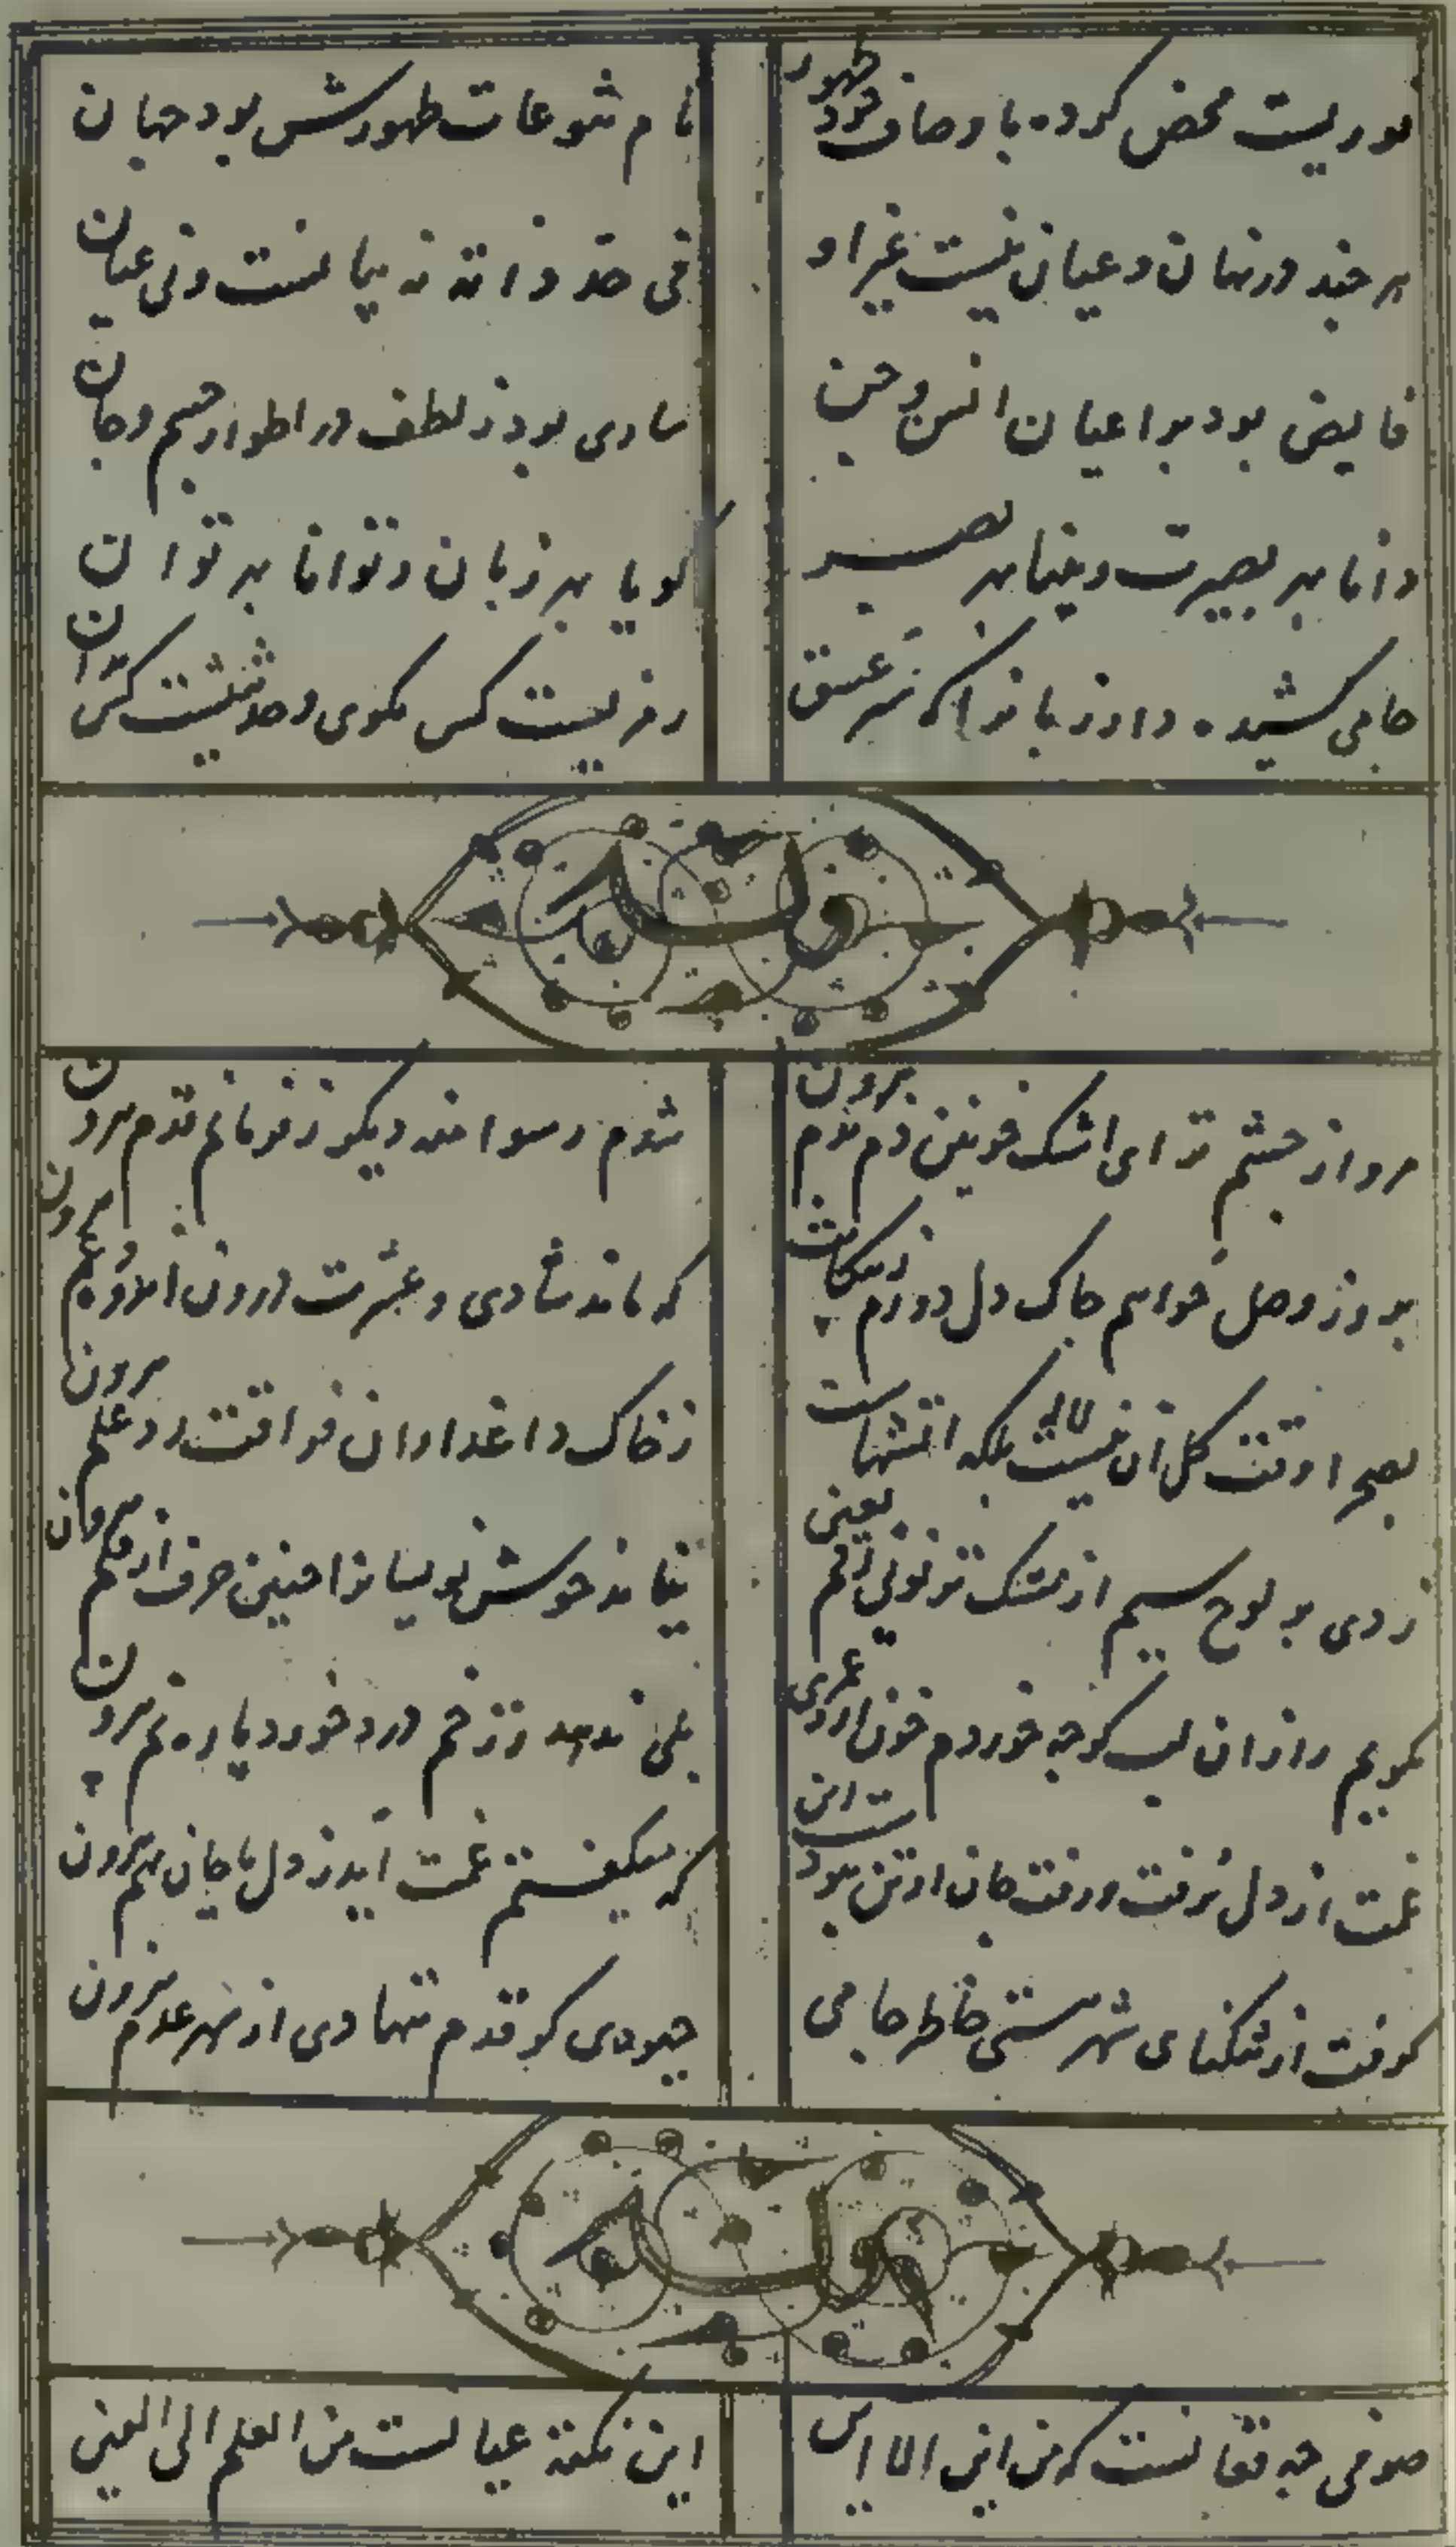 نوریست محض کرده باوصاف خود ظهور
نام تنوعات ظهورش بود جهان
هر چند در نهان و عیان نیست غیر او
فی حد ذاته نه نهانست و نی عیان
فایض بود بر اعیان انس و جن
ساری بود ز لطف در اطوار جسم و جان
دانا بهر بصیرت و بینا بهر بصر
گویا بهر زبان و توانا بهر توان
جامی کشیده دار زبانرا که سر عشق
رمزیست کس مگوی و حدیثیست کس مدان
مرو از چشم تر ای اشک خونین دم بدم بیرون
شدم رسوا منه دیگر ز فرمانم قدم بیرون
بروز وصل خواهم چاک دل دوزم ز پیکانت
که ماند شادی و عشرت درون اندوه و غم بیرون
بصحرا وقت گل آن نیست لاله بلکه آتشهاست
ز خاک داغداران فراقت زد علم بیرون
زدی بر لوح سیم از مشک تر نونی رقم یعنی
نیاید خوش نویسانرا چنین حرف از قلم بیرون
نگویم راز آن لب گرچه خوردم خون
بلی ندهد ز زخم درد خورد پاره نم بیرون
غمت از دل نرفت و رفت جان از تن بود این
که میگفتم غمت آید ز دل با جان بهم بیرون
گرفت از تنگنای شهر هستی خاطر جامی
چه بودی گر قدم ننهادی از شهر عدم بیرون
صوفی چه فغانست که من این الی این
این نکته عیانست من العلم الی العین